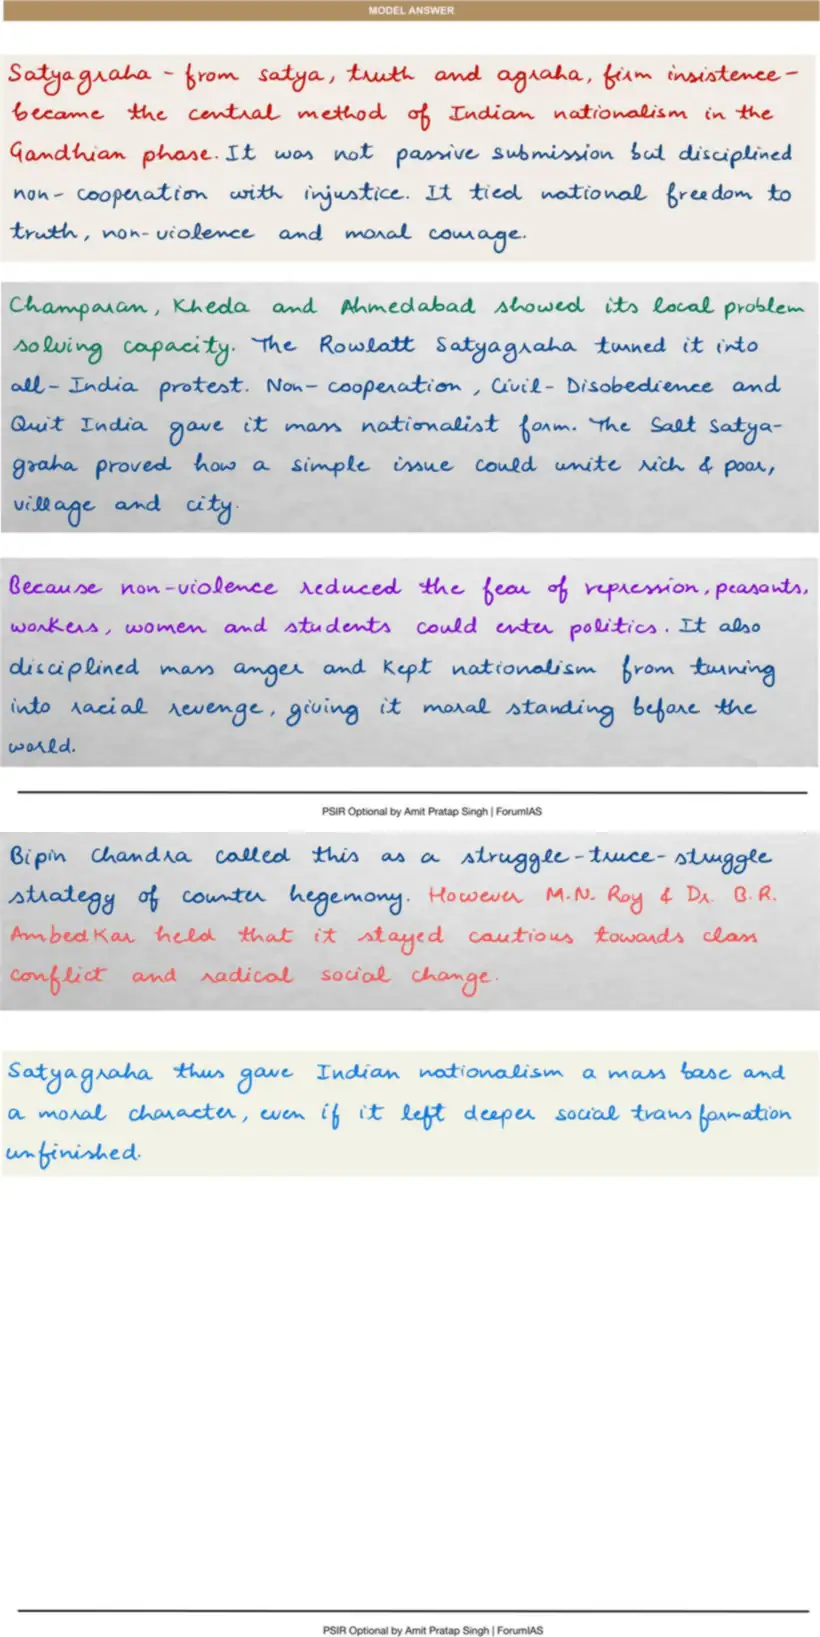 MODEL ANSWER
Satyagraha - from satya, truth and agraha, firm insistence -
became the central method of Indian nationalism in the
Gandhian phase. It was not passive submission but disciplined
non-cooperation with injustice. It tied national freedom to
truth, non-violence and moral courage.
Champaran, Kheda and Ahmedabad showed its local problem
solving capacity. The Rowlatt Satyagraha turned it into
all-India protest. Non-cooperation, Civil-Disobedience and
Quit India gave it mass nationalist form. The Salt Satya-
graha proved how a simple issue could unite rich & poor,
village and city.
Because non-violence reduced the fear of repression, peasants,
workers, women and students could enter politics. It also
disciplined mass anger and kept nationalism from turning
into racial revenge, giving it moral standing before the
world.
PSIR Optional by Amit Pratap Singh | ForumIAS
Bipin Chandra called this as a struggle-truce-struggle
strategy of counter hegemony. However M.N. Roy & Dr. B.R.
Ambedkar held that it stayed cautious towards class
conflict and radical social change.
Satyagraha thus gave Indian nationalism a mass base and
a moral character, even if it left deeper social transformation
unfinished.
PSIR Optional by Amit Pratap Singh | ForumIAS